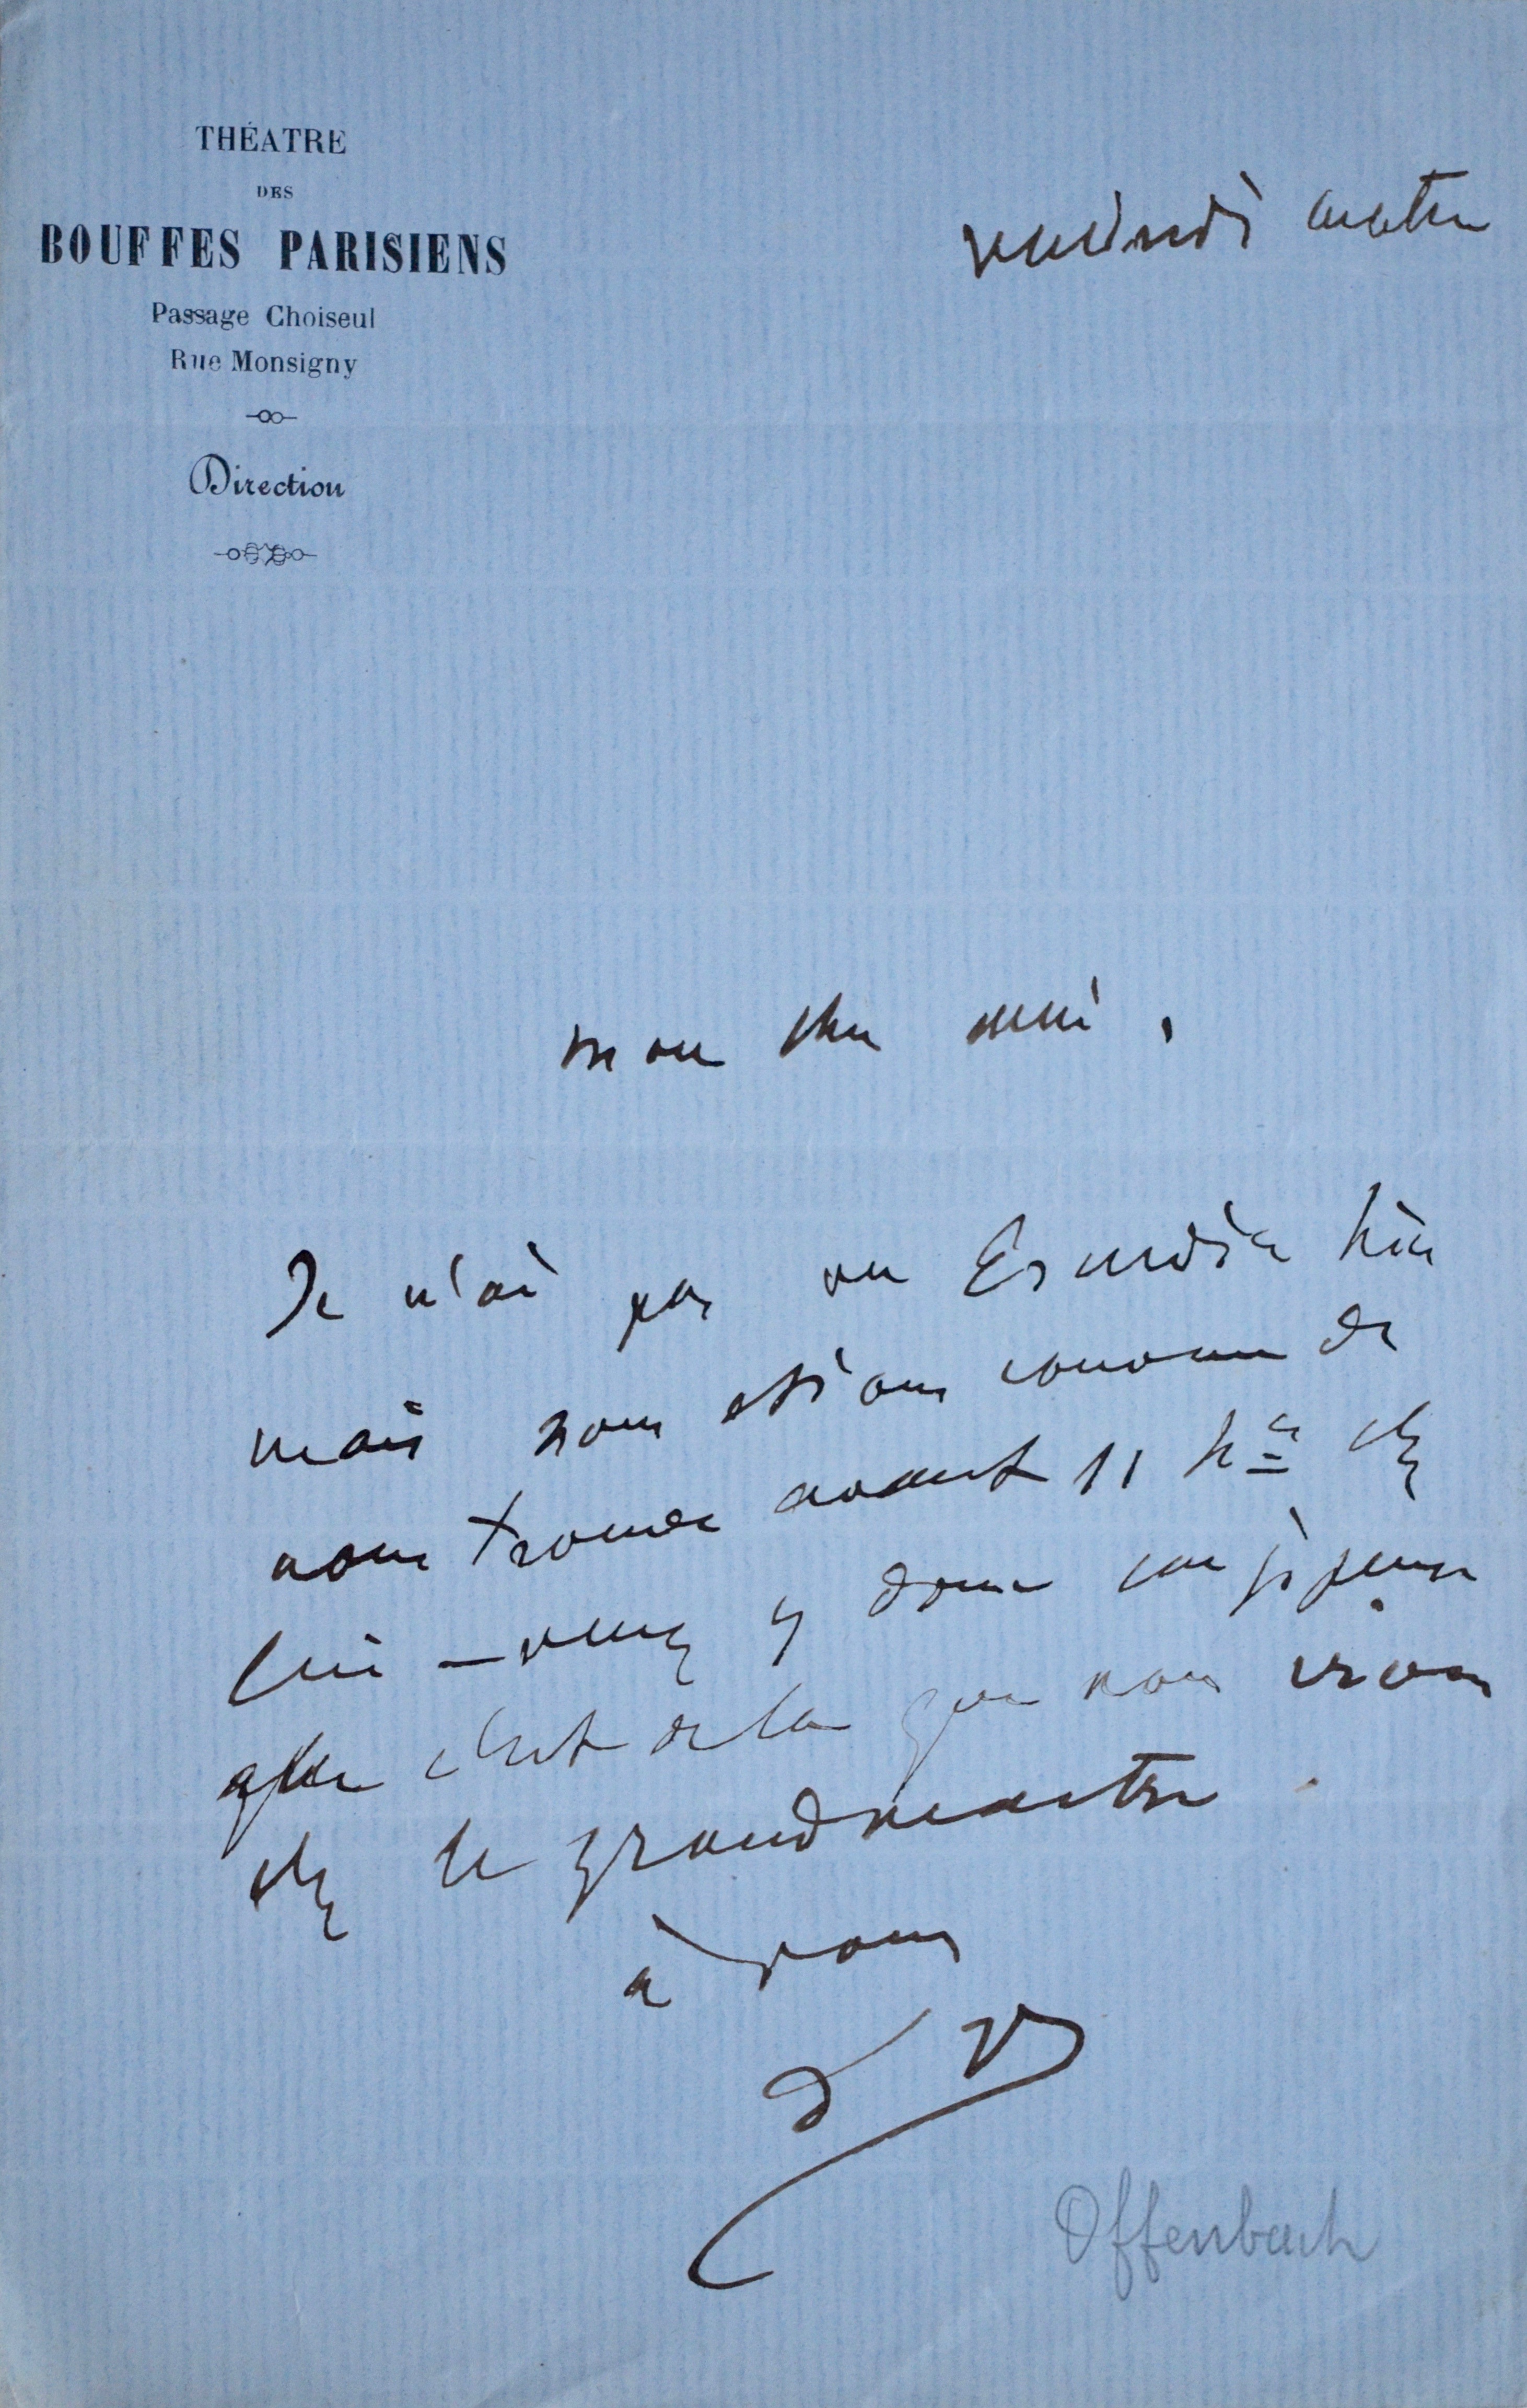 THÉATRE
DES
BOUFFES PARISIENS
Passage Choiseul
Rue Monsigny
Direction
vendredi matin
mon cher ami,
Je n'ai pas vu Escudier hier
mais nous etions convenu de
nous trouver avant 11 hres chez
lui - venez y donc car je pense
que c'est de la que nous irons
chez le grand maitre
à vous
Offenbach